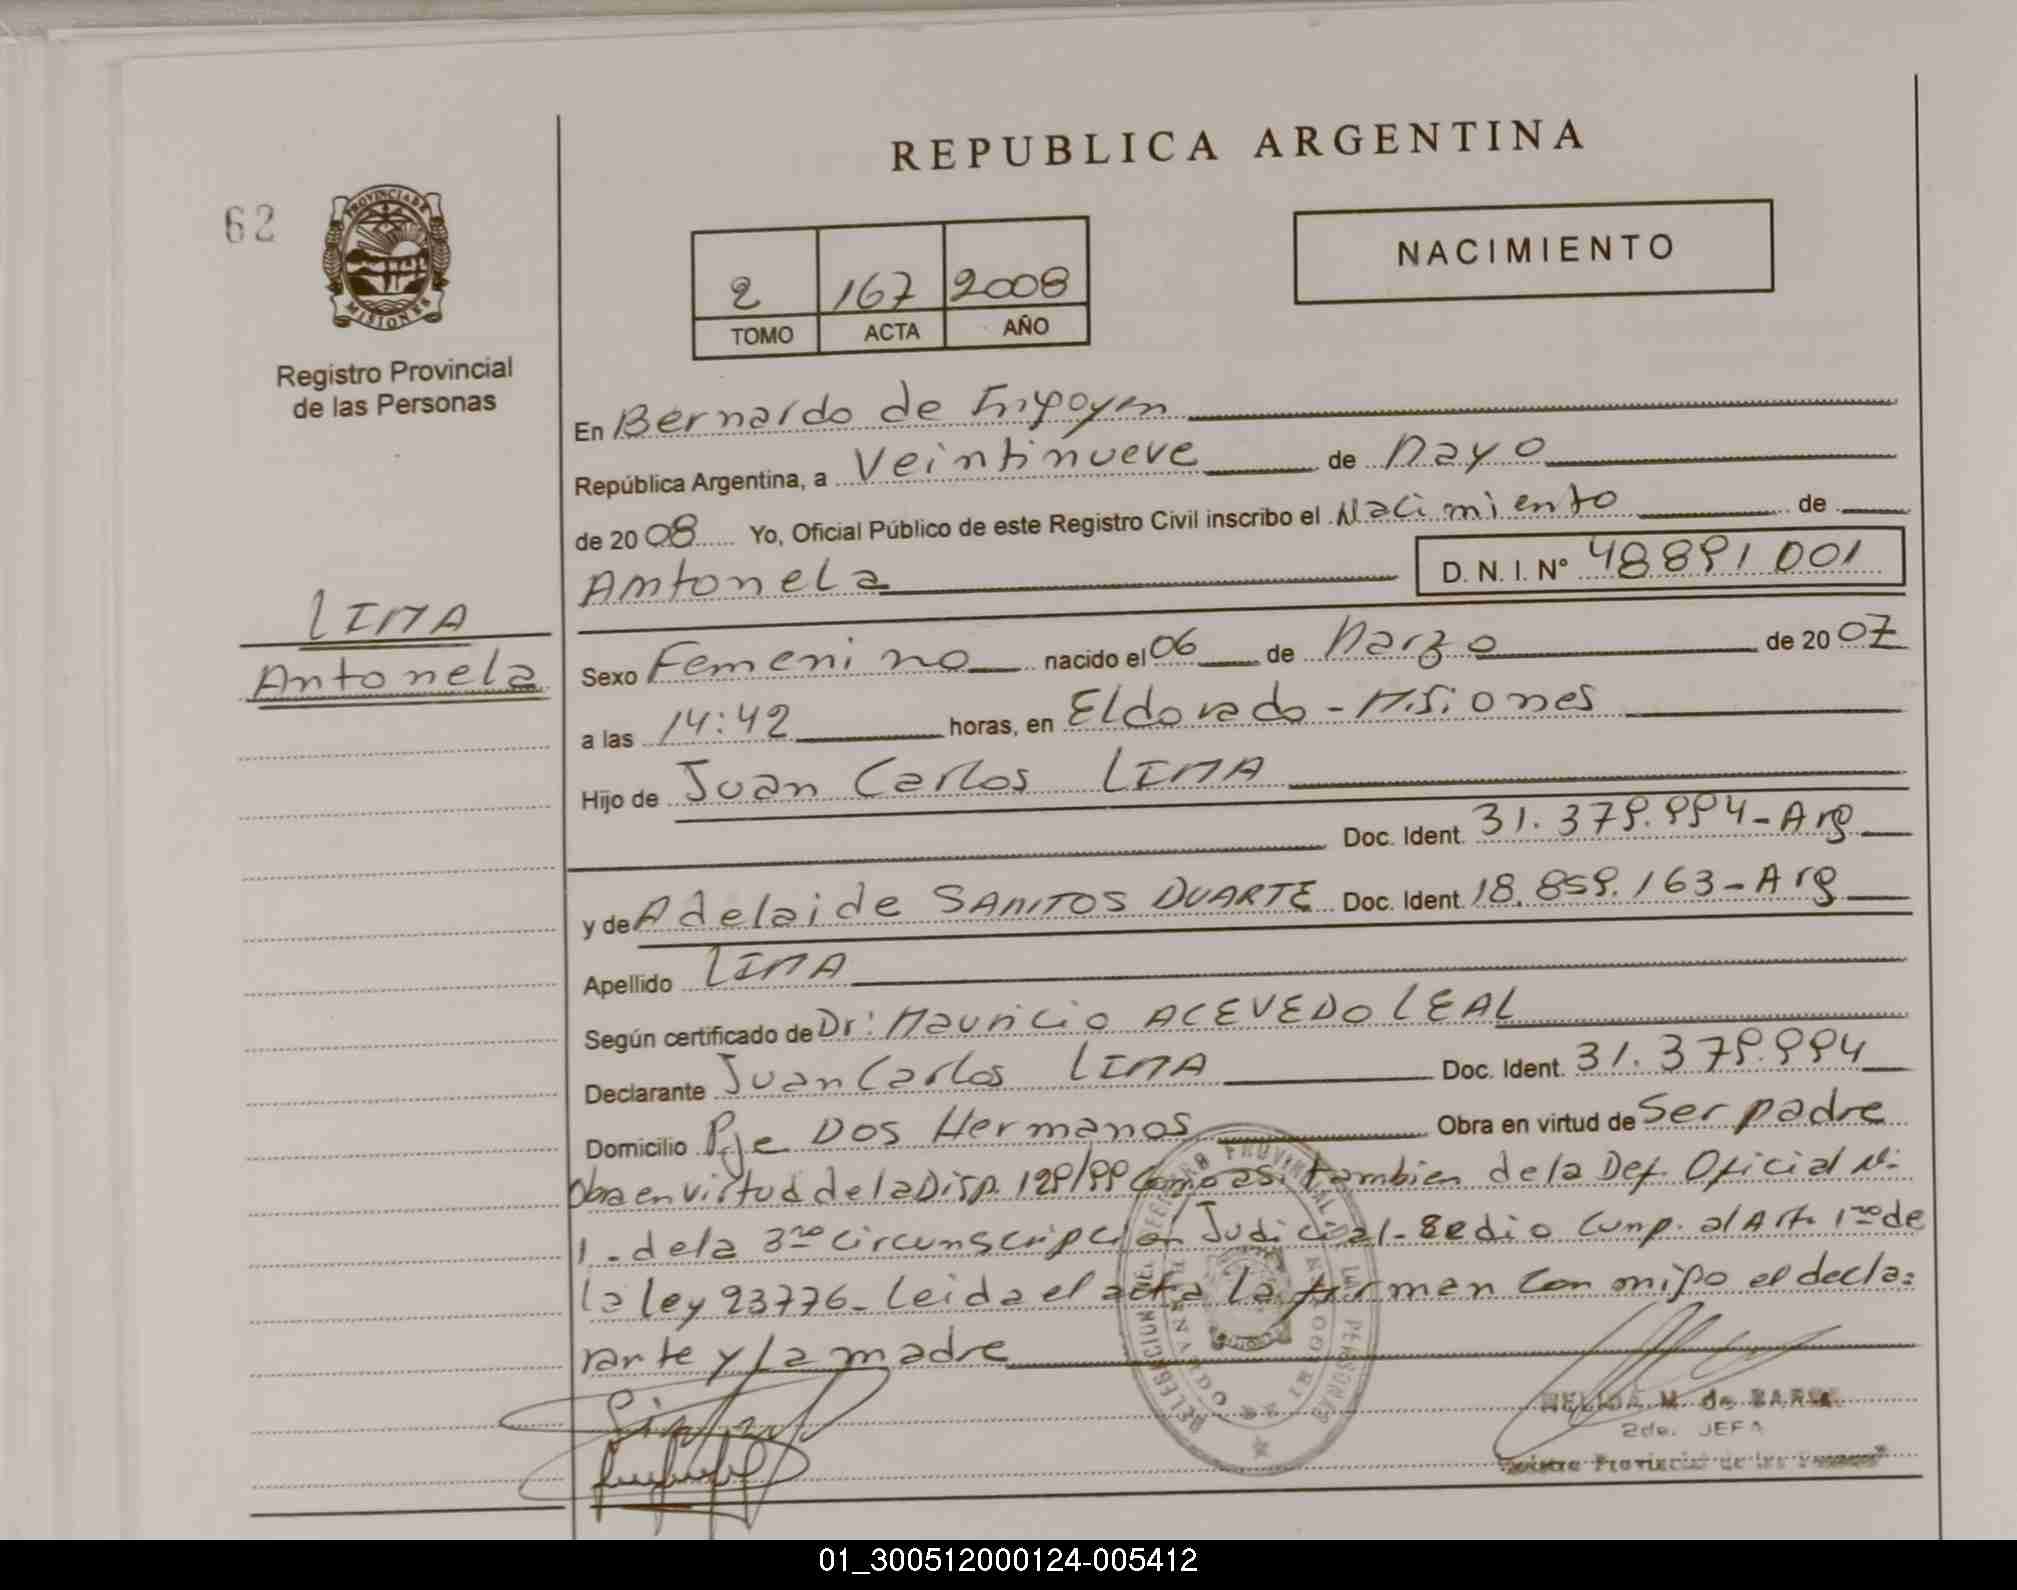 REPUBLICA ARGENTINA
62
PROVINCIA DE
MISIONES
2 167 2008
TOMO ACTA AÑO
NACIMIENTO
Registro Provincial
de las Personas
En Bernardo de Irigoyen
República Argentina, a Veintinueve de Mayo
de 2008 Yo, Oficial Público de este Registro Civil inscribo el Nacimiento de
Antonela D. N. I. Nº 48891001
LIMA
Antonela
Sexo Femenino nacido el 06 de Marzo de 2007
a las 14:42 horas, en Eldorado - Misiones
Hijo de Juan Carlos LIMA
Doc. Ident. 31.379.994 - Arg
y de Adelaide SANTOS DUARTE Doc. Ident. 18.859.163 - Arg
Apellido LIMA
Según certificado de Dr: Mauricio ACEVEDO LEAL
Declarante Juan Carlos LIMA Doc. Ident. 31.379.994
Domicilio Pje Dos Hermanos Obra en virtud de Ser padre
Obra en virtud de la Disp. 129/99 Como asi tambien de la Def. Oficial Nº
1 - de la 3ra circunscripción Judicial - Se dio Cump. al Art. 1ro de
la ley 23776 - Leida el acta la firman Con migo el decla=
rante y la madre
2da. JEFA
Registro Provincial de las Personas
01_300512000124-005412